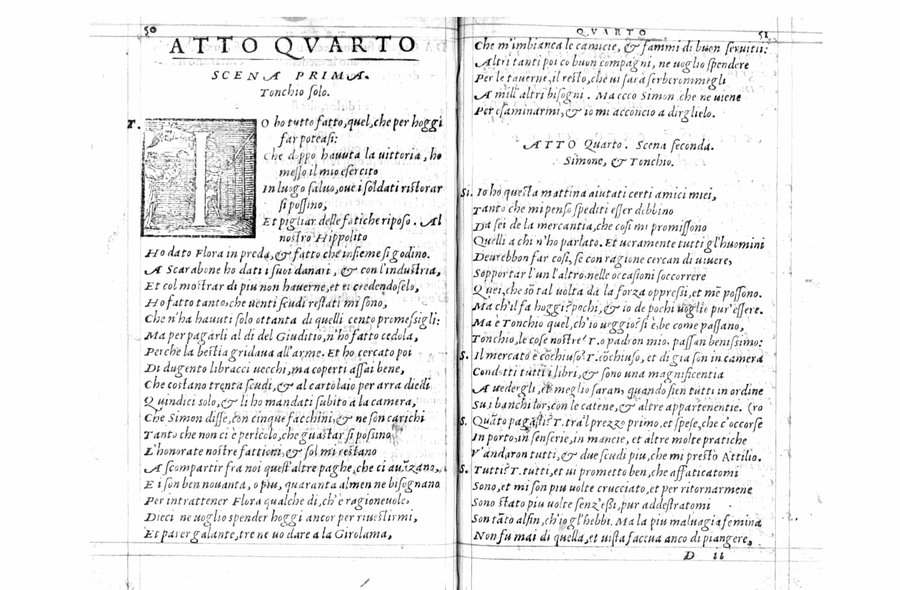 50
ATTO QVARTO
SCENA PRIMA.
Tonchio solo.
T. IO ho tutto fatto, quel, che per hoggi
far poteasi:
Che doppo hauuta la uittoria, ho
messo il mio esercito
In luogo saluo, oue i soldati ristorar
si possino,
Et pigliar delle fatiche riposo. Al
nostro Hippolito
Ho dato Flora in preda, & fatto che insieme si godino.
A Scarabone ho dati i suoi danari, & con l'industria,
Et col mostrar di piu non hauerne, et ei credendoselo,
Ho fatto tanto, che uenti scudi restati mi sono,
Che n'ha hauuti solo ottanta di quelli cento promessigli:
Ma per pagarli al dì del Giuditio, n'ho fatto cedola,
Perche la bestia gridaua all'arme. Et ho cercato poi
Di dugento libracci uecchi, ma coperti assai bene,
Che costano trenta scudi, & al cartolaio per arra diedi
Quindici solo, & li ho mandati subito a la camera,
Che Simon disse, con cinque facchini, & ne son carichi
Tanto che non ci è pericolo, che guastar si possino
L'honorate nostre fattioni, & sol mi restano
A scompartir fra noi quest'altre paghe, che ci auazano,
E i son ben nouanta, o piu, quaranta almen ne bisognano
Per intrattener Flora qualche dì, ch'è ragioneuole,
Dieci ne uoglio spender hoggi ancor per riuestirmi,
Et parer galante, tre ne uo dare a la Girolama,
QVARTO
51
Che m'imbianca le camicie, & fammi di buon seruitii:
Altri tanti poi co buon compagni, ne uoglio spendere
Per le tauerne, il resto, che ui sarà serberommegli
A mill'altri bisogni. Ma ecco Simon che ne uiene
Per esaminarmi, & io mi acconcio a dirglielo.
ATTO Quarto. Scena seconda.
Simone, & Tonchio.
Si. Io ho questa mattina aiutati certi amici miei,
Tanto che mi penso spediti esser debbino
Da sei de la mercantia, che così mi promissono
Quelli a chi n'ho parlato. Et ueramente tutti gl'huomini
Deurebbon far così, se con ragione cercan di uiuere,
Sopportar l'un l'altro, nelle occasioni soccorrere
Quei, che sō tal uolta da la forza oppressi, et mē possono.
Ma ch'il fa hoggi? pochi, & io de pochi uoglie pur'essere.
Ma è Tonchio quel, ch'io ueggio? sì è, be come passano,
Tonchio, le cose nostre? T. o padron mio, passan benissimo:
S. Il mercato è cōchiuso? T. cōchiuso, et di già son in camera
Condotti tutti i libri, & sono una magnificentia
A uedergli, et meglio saran, quando sien tutti in ordine
Su i banchi lor, con le catene, & altre appartenentie. (ro
S. Quāto pagasti? T. tra'l prezzo primo, et spese, che c'occorse
In porto, in senserie, in mancie, et altre molte pratiche
V'andaron tutti, & due scudi piu, che mi prestò Attilio.
S. Tutti? T. tutti, et ui prometto ben, che affaticatomi
Sono, et mi son piu uolte crucciato, et per ritornarmene
Sono stato piu uolte senz'essi, pur addestratomi
Son tāto alfin, ch'io gl'hebbi. Ma la piu maluagia femina
Non fu mai di quella, et uista faceua anco di piangere,
D ii